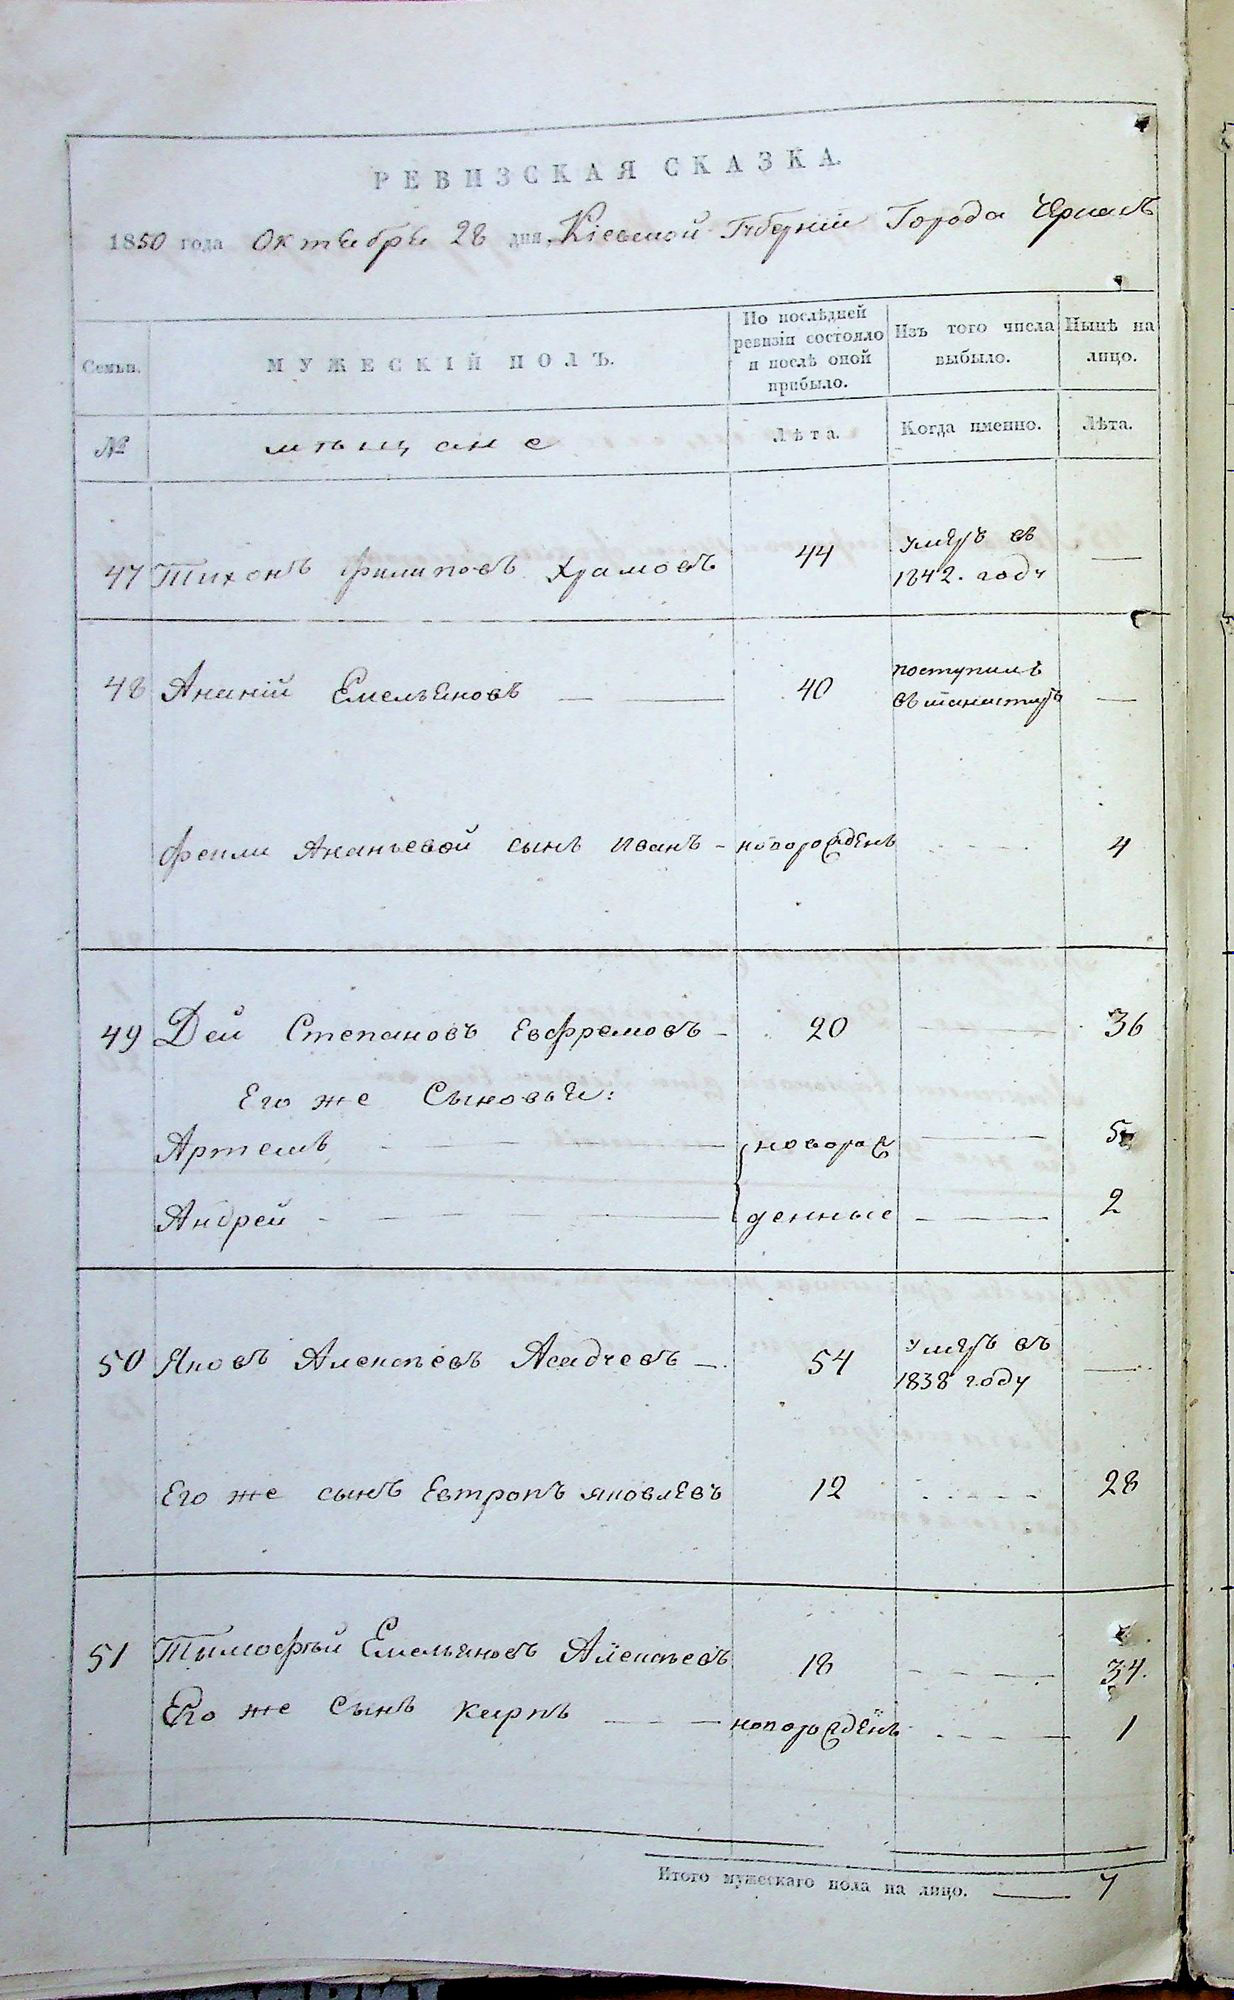 РЕВИЗСКАЯ СКАЗКА.
1850 года Октября 28 дня Кіевской Губерніи Города Черкасъ
Семьи.
МУЖЕСКІЙ ПОЛЪ.
По послѣдней ревизіи состояло и послѣ оной прибыло.
Изъ того числа выбыло.
Нынѣ на лицо.
№
мѣщане
Лѣта.
Когда именно.
Лѣта.
47 Тихонъ Филиповъ Храмовъ 44 умеръ въ 1842. году —
48 Ананій Емельяновъ — 40 поступилъ въ манастырь —
Ананьевой сынъ Иванъ - новорожденъ 4
49 Дей Степановъ Евфремовъ - 20 — 36
Его же Сыновья:
Артемъ — новорож — 5
Андрей — денные — 2
50 Яковъ Алексѣевъ Асадчевъ — 54 умеръ въ 1838 году —
Его же сынъ Евтропъ Яковлевъ 12 28
51 Тимофѣй Емельяновъ Алексѣевъ 18 34.
Его же Сынъ Карпъ — новорожденъ 1
Итого мужескаго пола на лицо. — 7